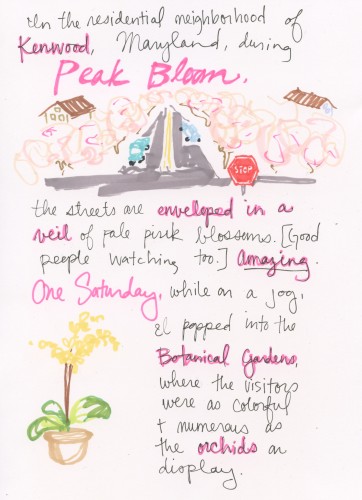 In the residential neighborhood of
Kenwood, Maryland, during
Peak Bloom,
STOP
the streets are enveloped in a
veil of pale pink blossoms. [Good
people watching too.] Amazing.
One Saturday, while on a jog,
I popped into the
Botanical Gardens,
where the visitors
were as colorful
+ numerous as
the orchids on
display.